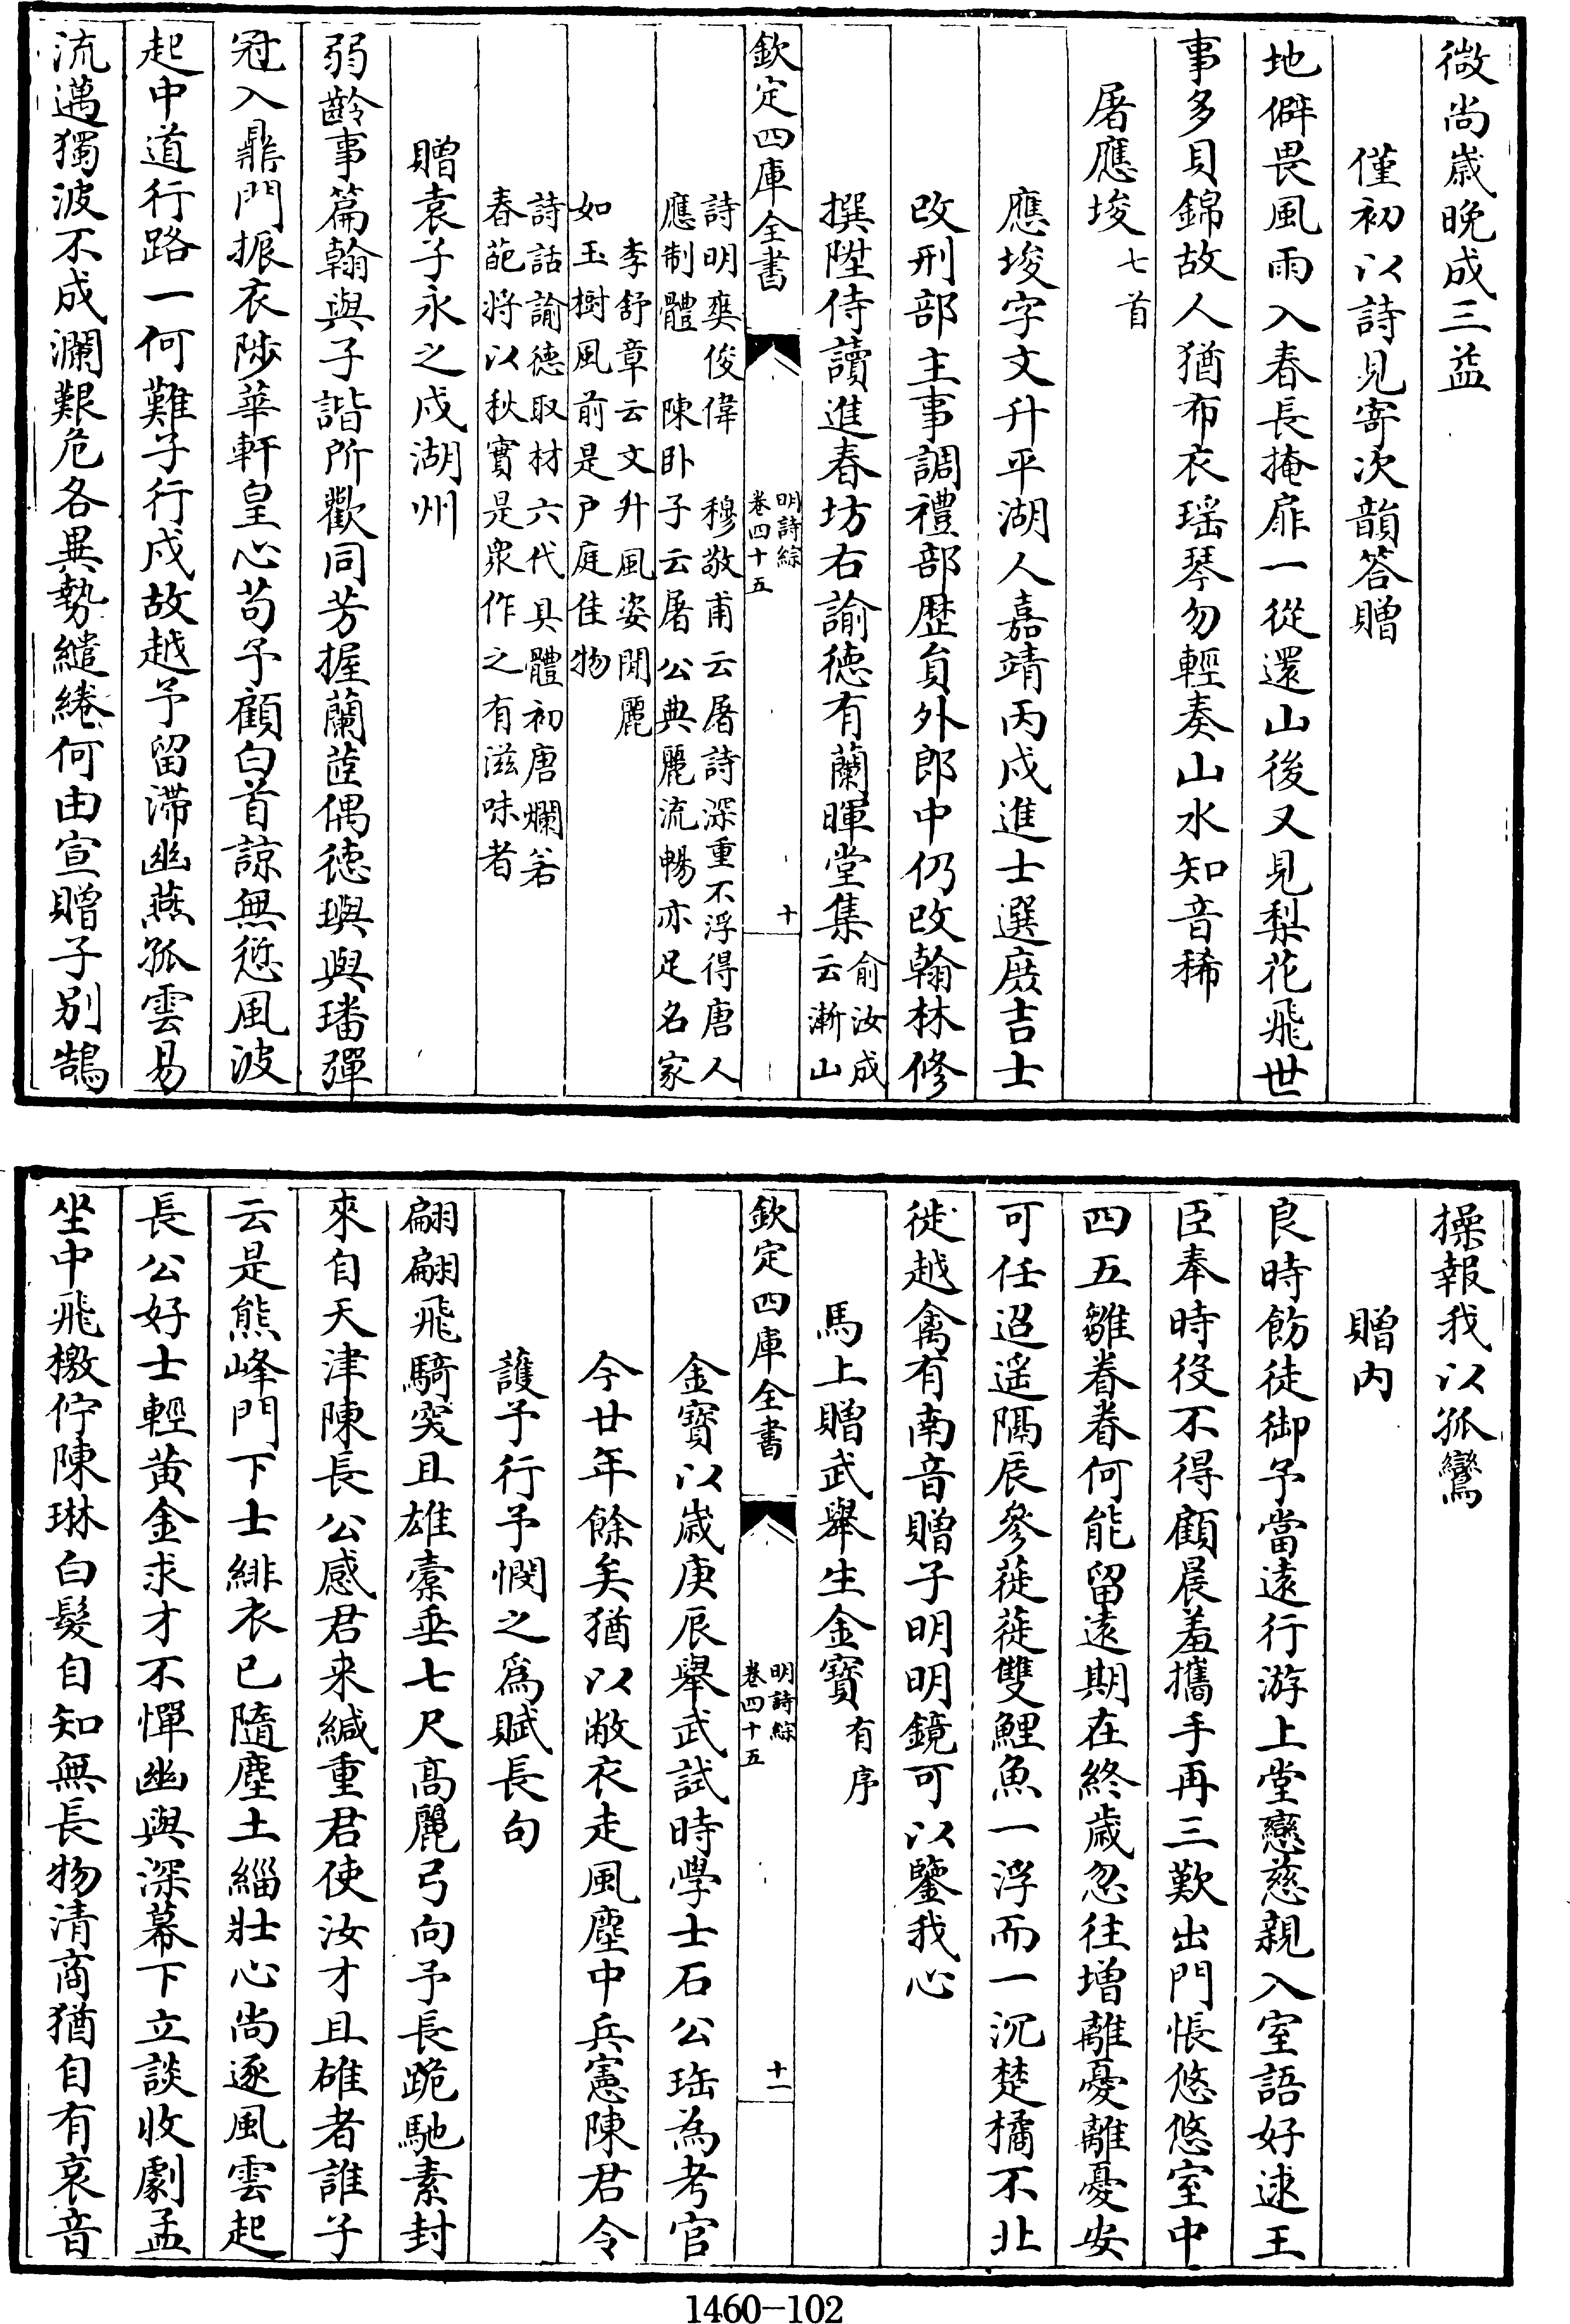 微尚嵗晚成三益
僅初以詩見寄次韻答贈
地僻畏風雨入春長掩扉一從還山後又見梨花飛世
事多貝錦故人猶布衣瑶琴勿輕奏山水知音稀
屠應埈七首
應埈字文升平湖人嘉靖丙戌進士選庶吉士
改刑部主事調禮部歴員外郎中仍改翰林修
撰陞侍讀進春坊右諭徳有蘭暉堂集俞汝成
云漸山
欽定四庫全書
明詩綜
卷四十五
十
詩明爽俊偉 穆敬甫云屠詩深重不浮得唐人
應制體 陳卧子云屠公典麗流暢亦足名家
李舒章云文升風姿閒麗
如玉樹風前是戸庭佳物
詩話諭徳取材六代具體初唐爛若
春葩将以秋實是衆作之有滋味者
贈袁子永之戍湖州
弱齡事篇翰與子諧所歡同芳握蘭茝偶徳璵與璠彈
冠入鼎門振衣陟華軒皇心苟予顧白首諒無愆風波
起中道行路一何難子行戍故越予留滯幽燕孤雲易
流邁獨波不成瀾艱危各異勢繾綣何由宣贈子别鵠
操報我以孤鸞
贈内
良時飭徒御予當遠行游上堂戀慈親入室語好逑王
臣奉時役不得顧晨羞攜手再三歎出門悵悠悠室中
四五雛眷眷何能留遠期在終歲忽往增離憂離憂安
可任迢遥隔辰參蓰蓰雙鯉魚一浮而一沉楚橘不北
徙越禽有南音贈子明明鏡可以鑒我心
馬上贈武舉生金寶有序
欽定四庫全書
明詩綜
卷四十五
十一
金寶以嵗庚辰舉武試時學士石公珤為考官
今廿年餘矣猶以敝衣走風塵中兵憲陳君令
護予行予憫之爲賦長句
翩翩飛騎突且雄橐垂七尺髙麗弓向予長跪馳素封
來自天津陳長公感君来緘重君使汝才且雄者誰子
云是熊峰門下士緋衣已隨塵土緇壯心尚逐風雲起
長公好士輕黄金求才不憚幽與深幕下立談收劇孟
坐中飛檄佇陳琳白髮自知無長物清商猶自有哀音
1460-102